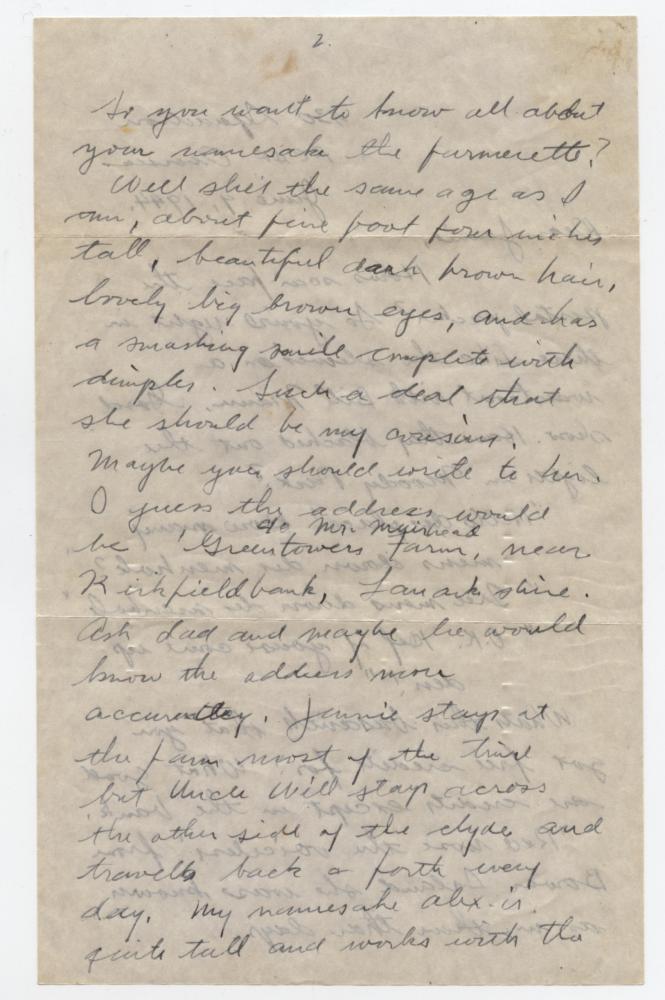 2.
So you want to know all about
your namesake the farmerette?
Well she's the same age as I
am, about five foot four inches
tall, beautiful dark brown hair,
lovely big brown eyes, and has
a smashing smile complete with
dimples. Such a deal that
she should be my cousin.
Maybe you should write to her.
I guess the address would
c/o Mr. Muirhead
be "Greentowers Farm, near
Kirkfieldbank, Lanarkshire.
Ask dad and maybe he would
know the address more
accurately. Jennie stays at
the farm most of the time
but Uncle Will stays across
the other side of the clyde and
travells back & forth every
day. My namesake Alex is
quite tall and works with the